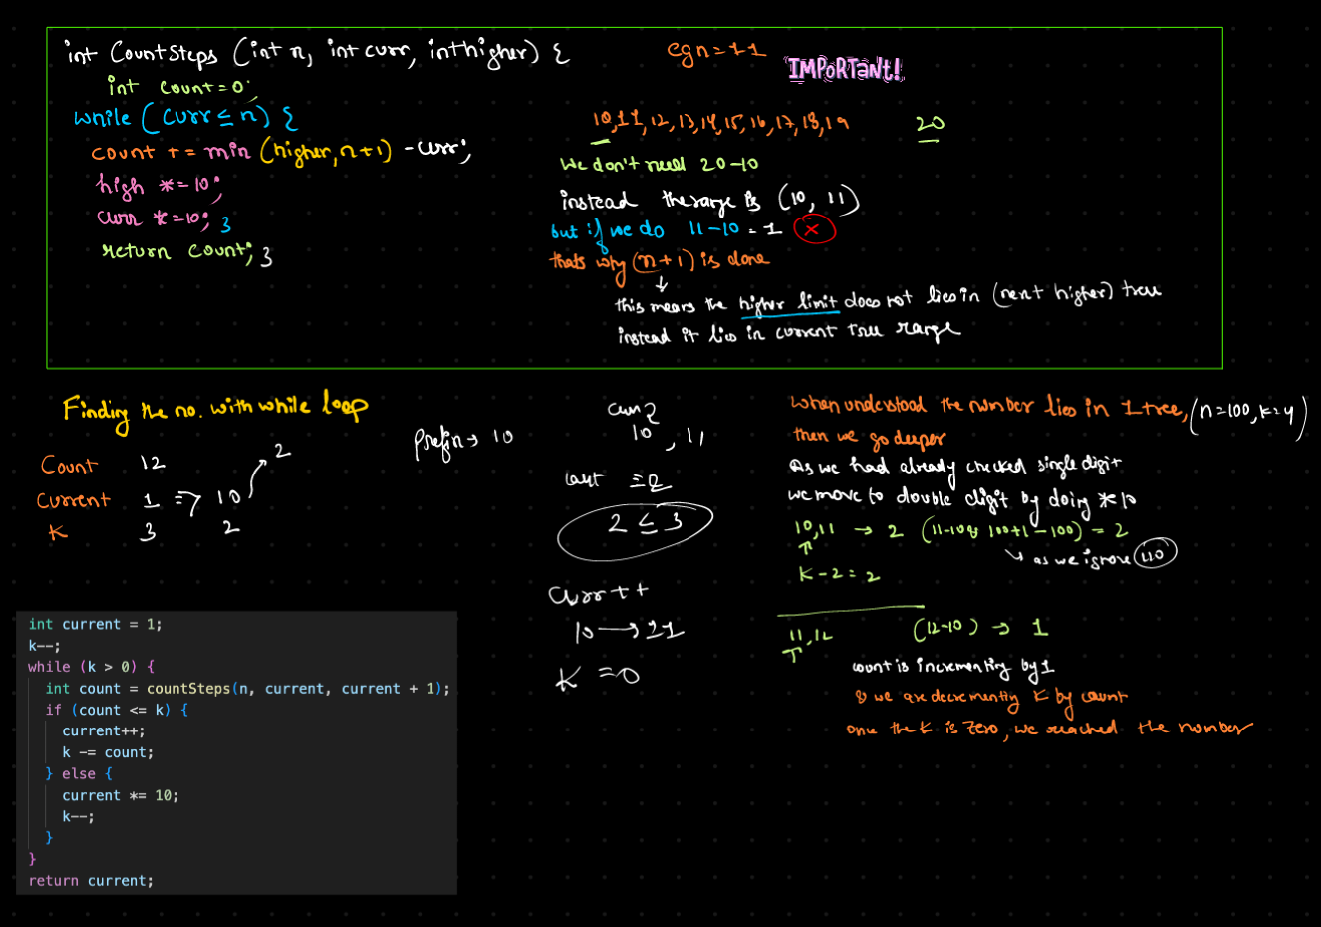 int CountSteps (int n, int curr, int higher) {
int count = 0;
while (curr ≤ n) {
count += min (higher, n+1) - curr;
high *= 10;
curr *= 10; }
return count; }
eg n = 11
IMPORTANT!
10, 11, 12, 13, 14, 15, 16, 17, 18, 19 20
We don't need 20-10
instead the range is (10, 11)
but if we do 11-10 = 1 X
thats why (n+1) is done
↓
this means the higher limit does not lies in (next higher) tree
instead it lies in current tree range
Finding the no. with while loop
Count 12
Current 1 => 10 → 2
K 3 2
prefix → 10
curr
10, 11
count = 2
2 ≤ 3
curr++
10 → 11
K = 0
When understood the number lies in 1 tree, (n=100, k=4)
then we go deeper
As we had already checked single digit
we move to double digit by doing *10
10, 11 → 2 (11-10 & 100+1-100) = 2
↑
↳ as we ignore 110
K-2 = 2
11, 12 (12-10) → 1
↑
count is incrementing by 1
& we are decrementing K by count
once the k is zero, we reached the number
int current = 1;
k--;
while (k > 0) {
int count = countSteps(n, current, current + 1);
if (count <= k) {
current++;
k -= count;
} else {
current *= 10;
k--;
}
}
return current;